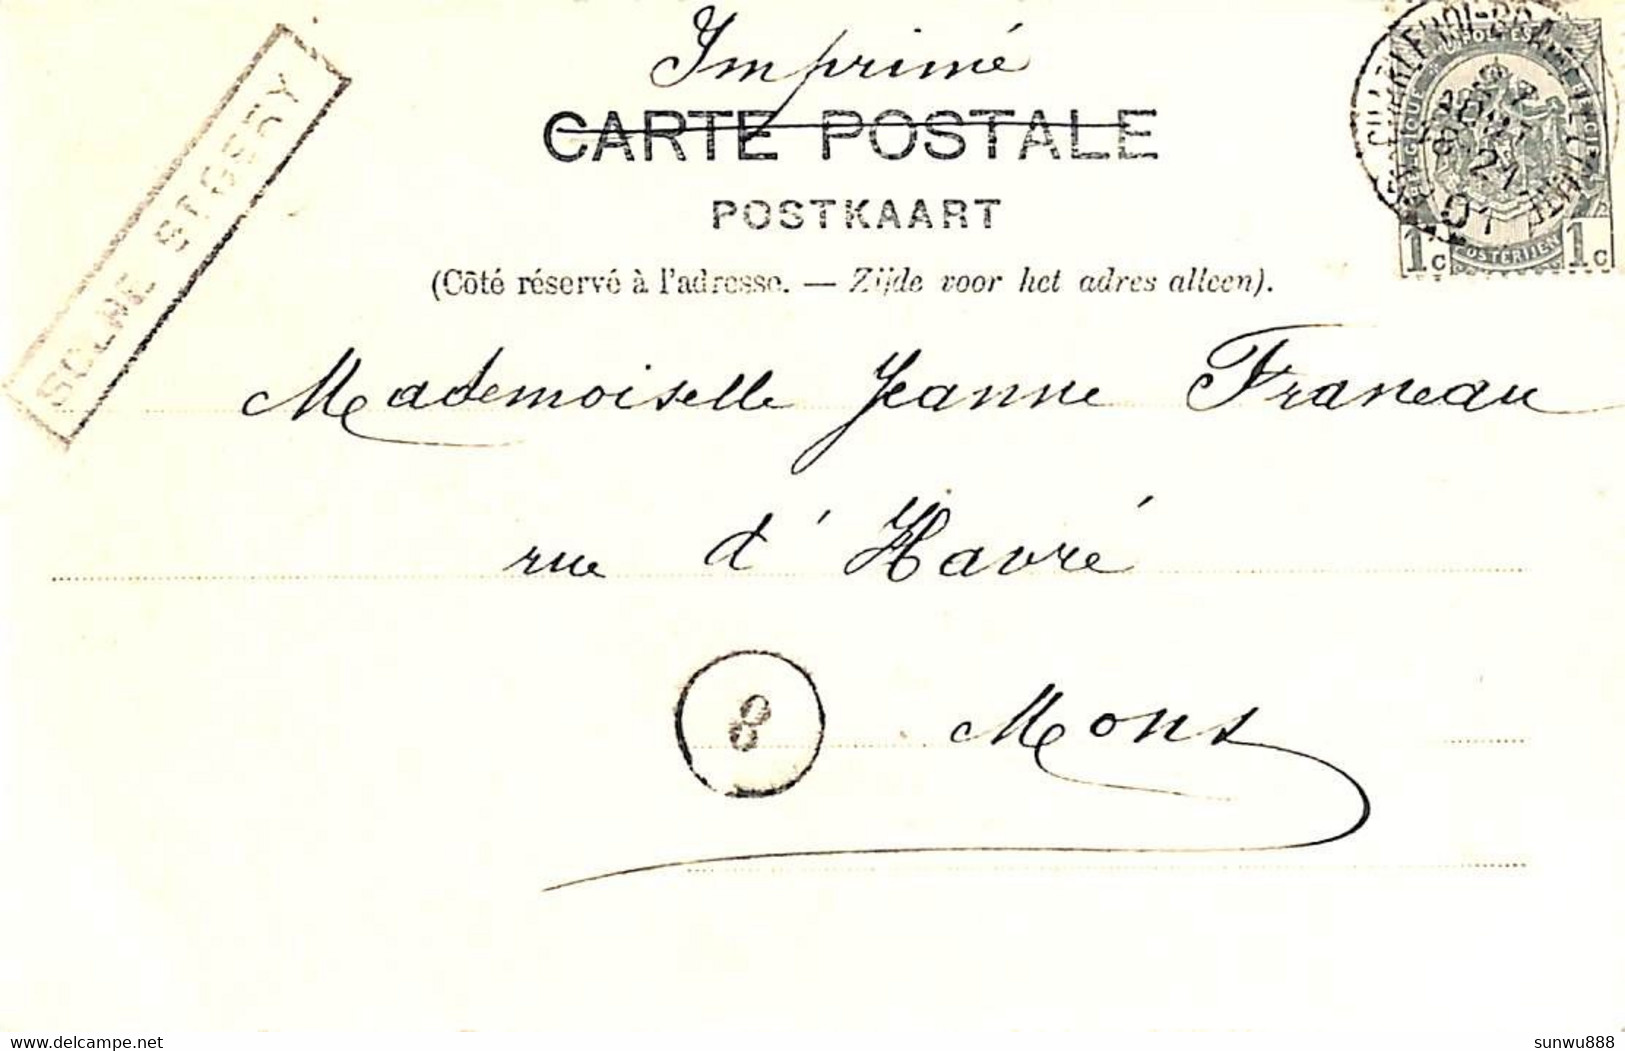 Imprimé
CARTE POSTALE
POSTKAART
(Côté réservé à l'adresse. — Zijde voor het adres alleen).
SOLRE ST GERY
1c 1c
POSTERIJEN
01
Mademoiselle Jeanne Franeau
rue d'Havré
8
Mons
www.delcampe.net
sunwu888